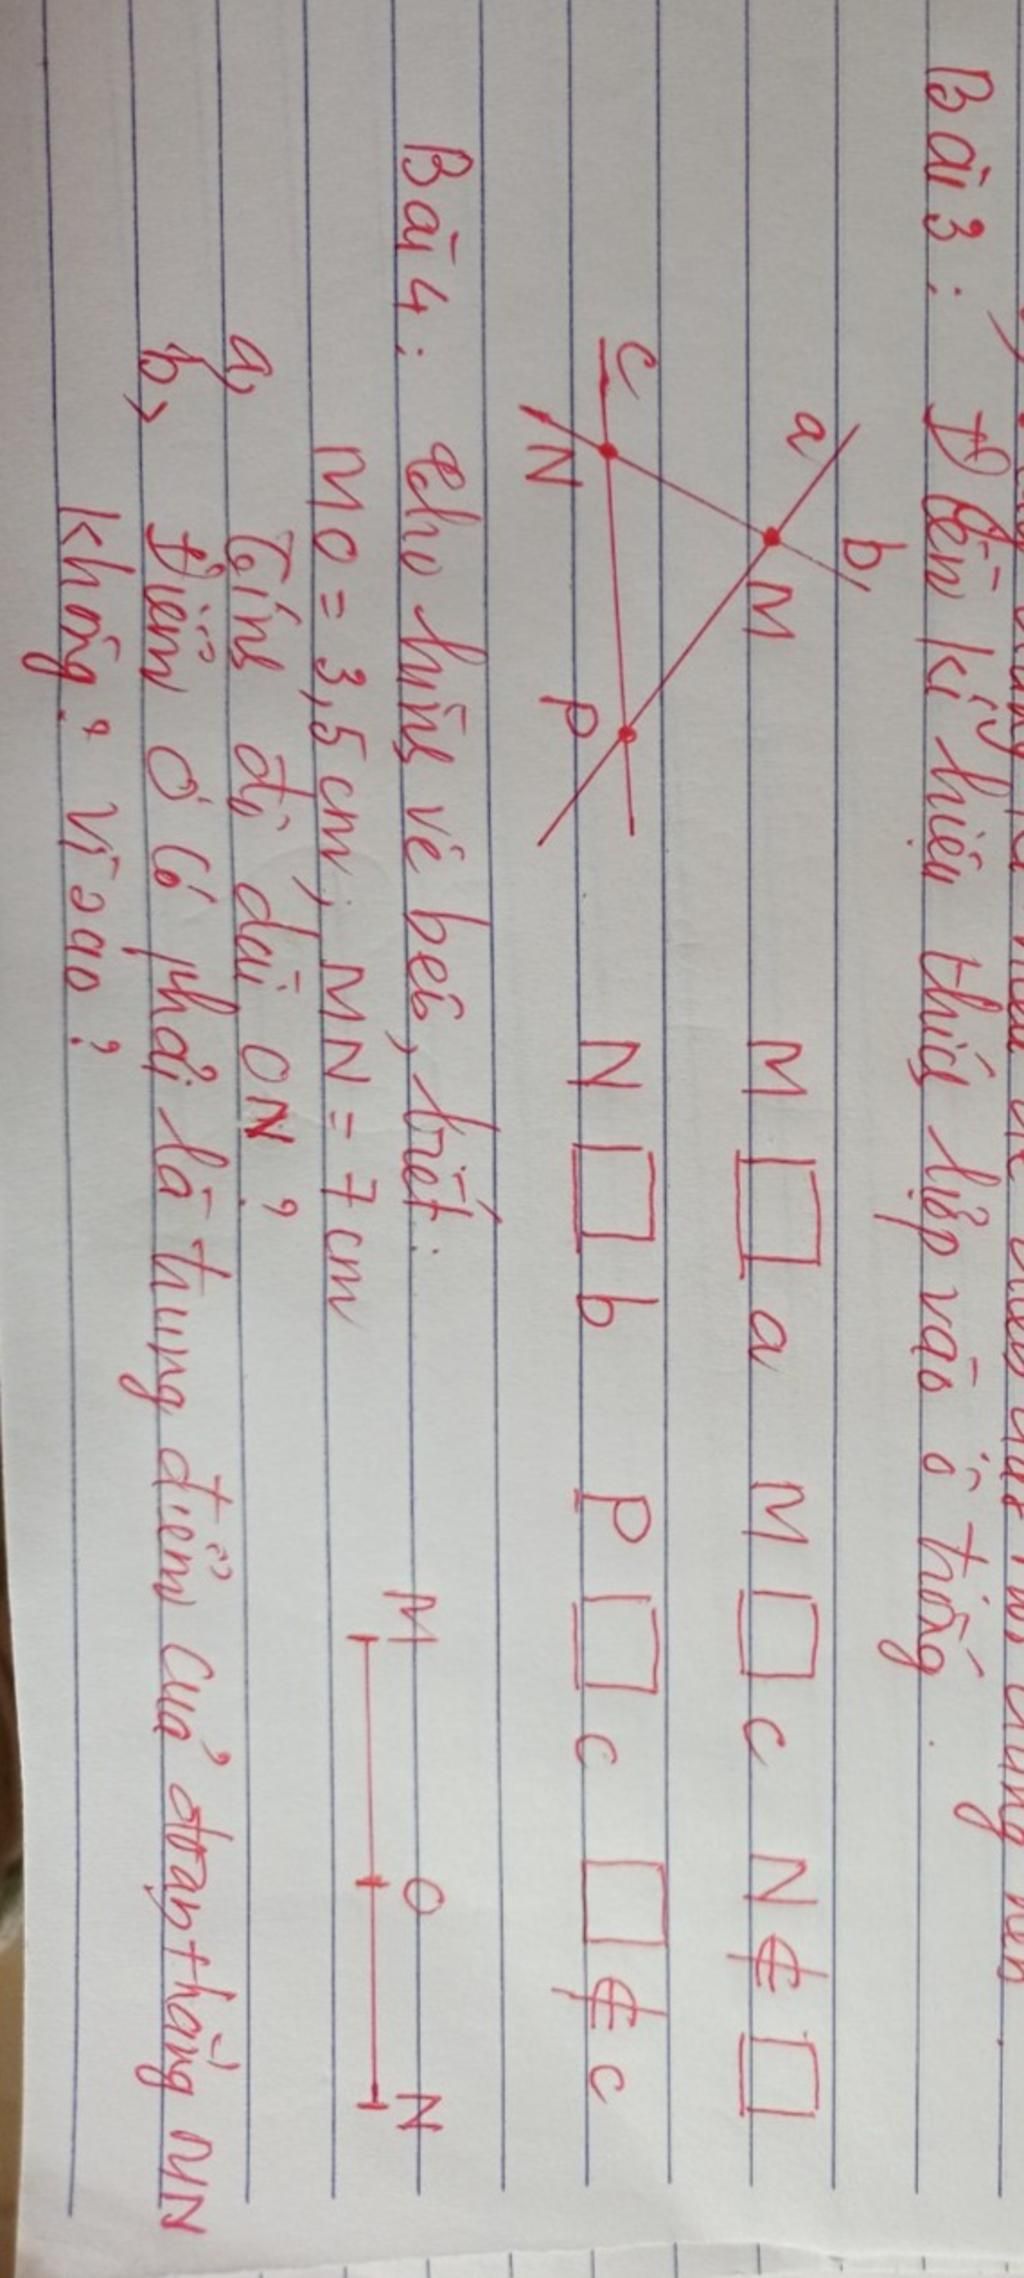 Bài 3: Điền kí hiệu thích hợp vào ô trống.
a b
M
c
N P
M □ a M □ c N ∉ □
N □ b P □ c □ ∉ c
Bài 4: Cho hình vẽ bên, biết:
MO = 3,5 cm; MN = 7 cm
M O N
a, Tính độ dài ON?
b, Điểm O có phải là trung điểm của đoạn thẳng MN
không? Vì sao?